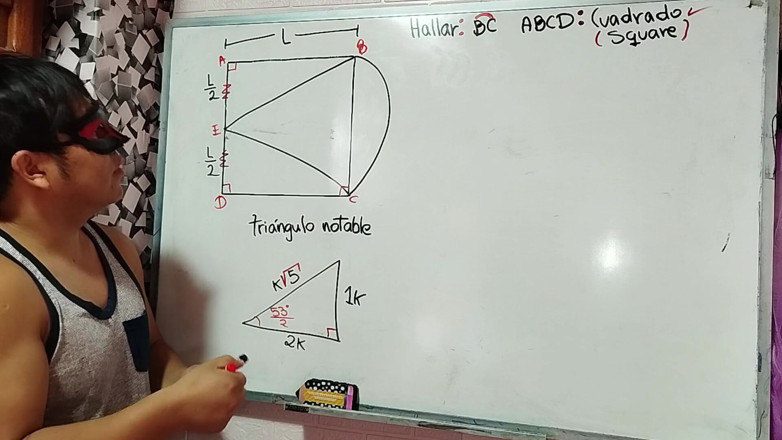 Hallar: BC ABCD: Cuadrado
(Square)
L
A B
L/2
E
L/2
D C
Triángulo notable
K√5
1K
53°/2
2K